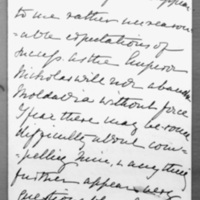 to me rather unreason
-able expectations of
success as the Emperor
Nicholas will not aband
Moldavia without force
I fear there may be some
difficulty about com-
pelling him, & anything
further appears very